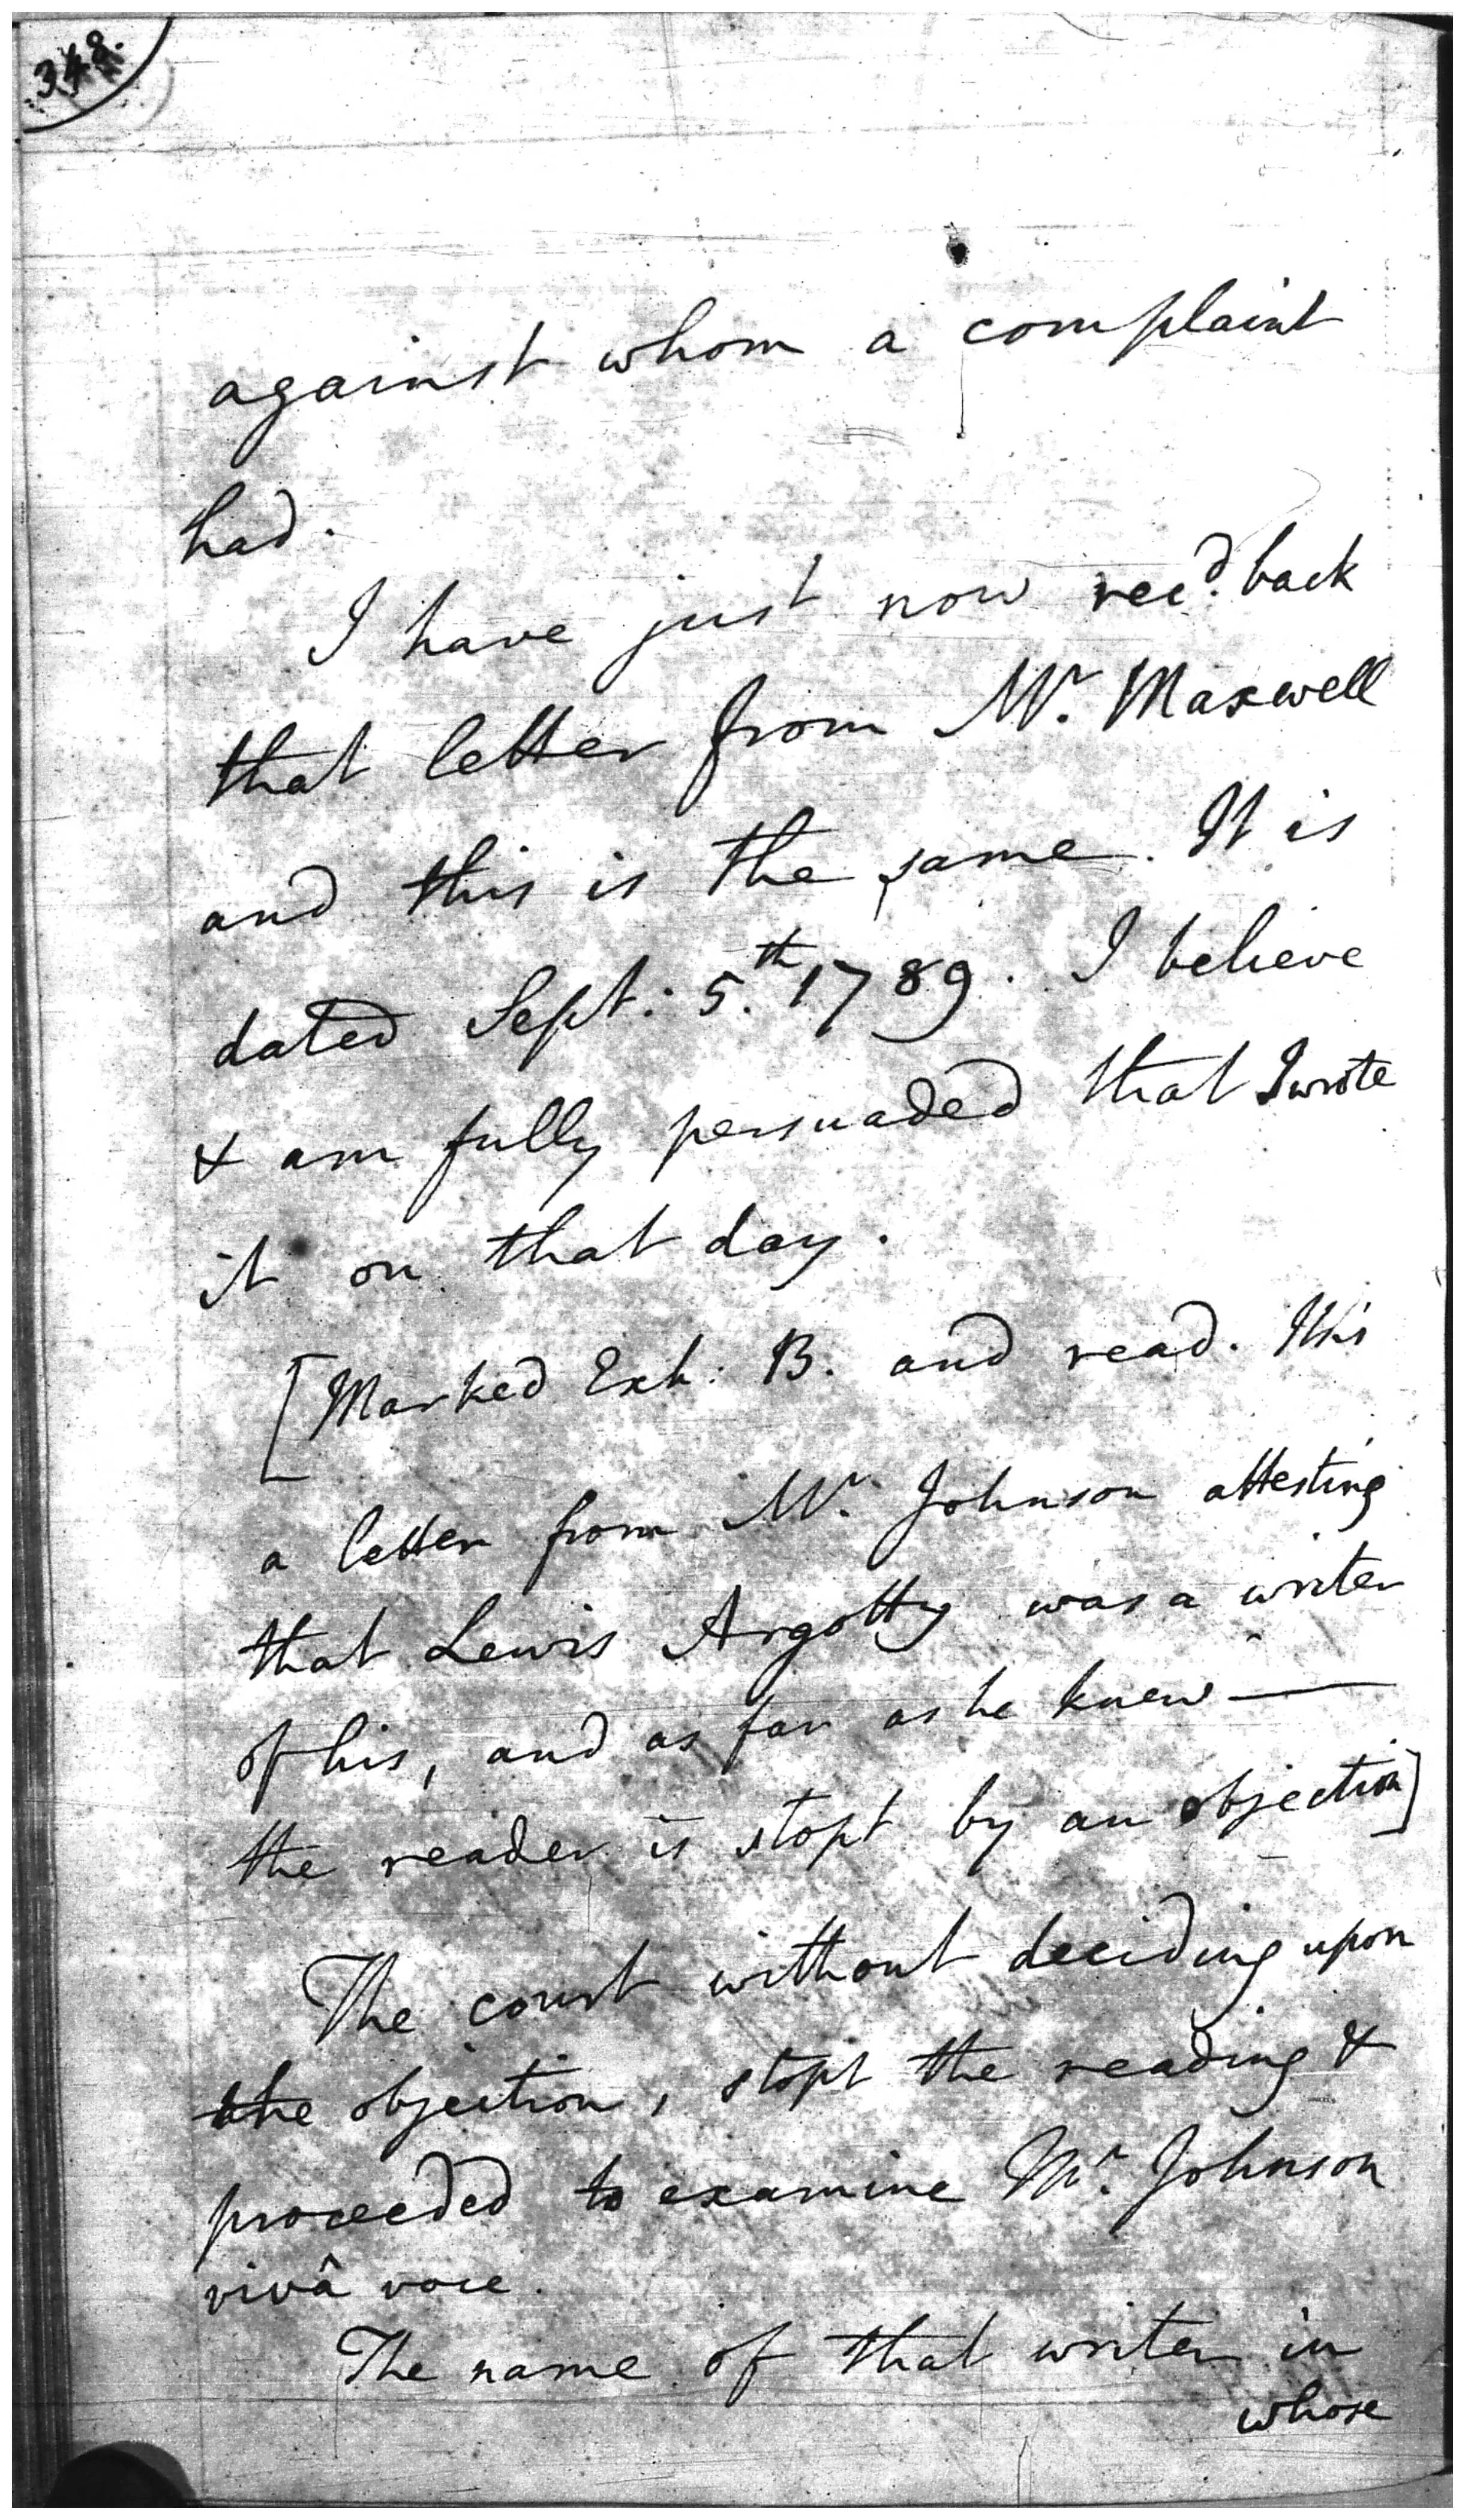 348.
against whom a complaint
had.
I have just now recd. back
that letter from Mr. Maxwell
and this is the same. It is
dated Sept: 5.th 1789. I believe
& am fully persuaded that I wrote
it on that day.
[Marked Exh: B. and read. It is
a letter from Mr. Johnson attesting
that Lewis Argotty was a writer
of his, and as far as he knew —
the reader is stopt by an objection]
The court without deciding upon
the objection, stopt the reading &
proceeded to examine Mr. Johnson
vivâ voce.
The name of that writer in
whose